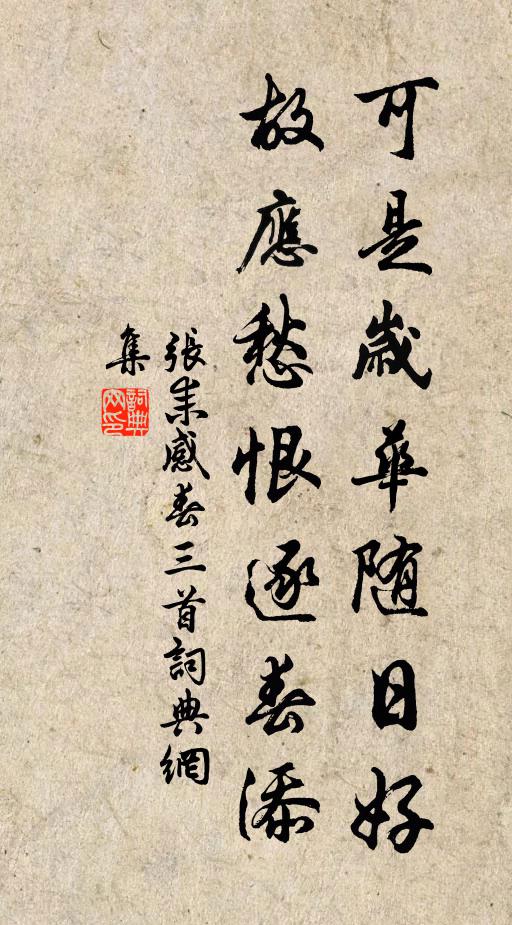 可是歲華随日好
故應愁恨逐春添
張耒感春三首詞典網
集
詞典網印